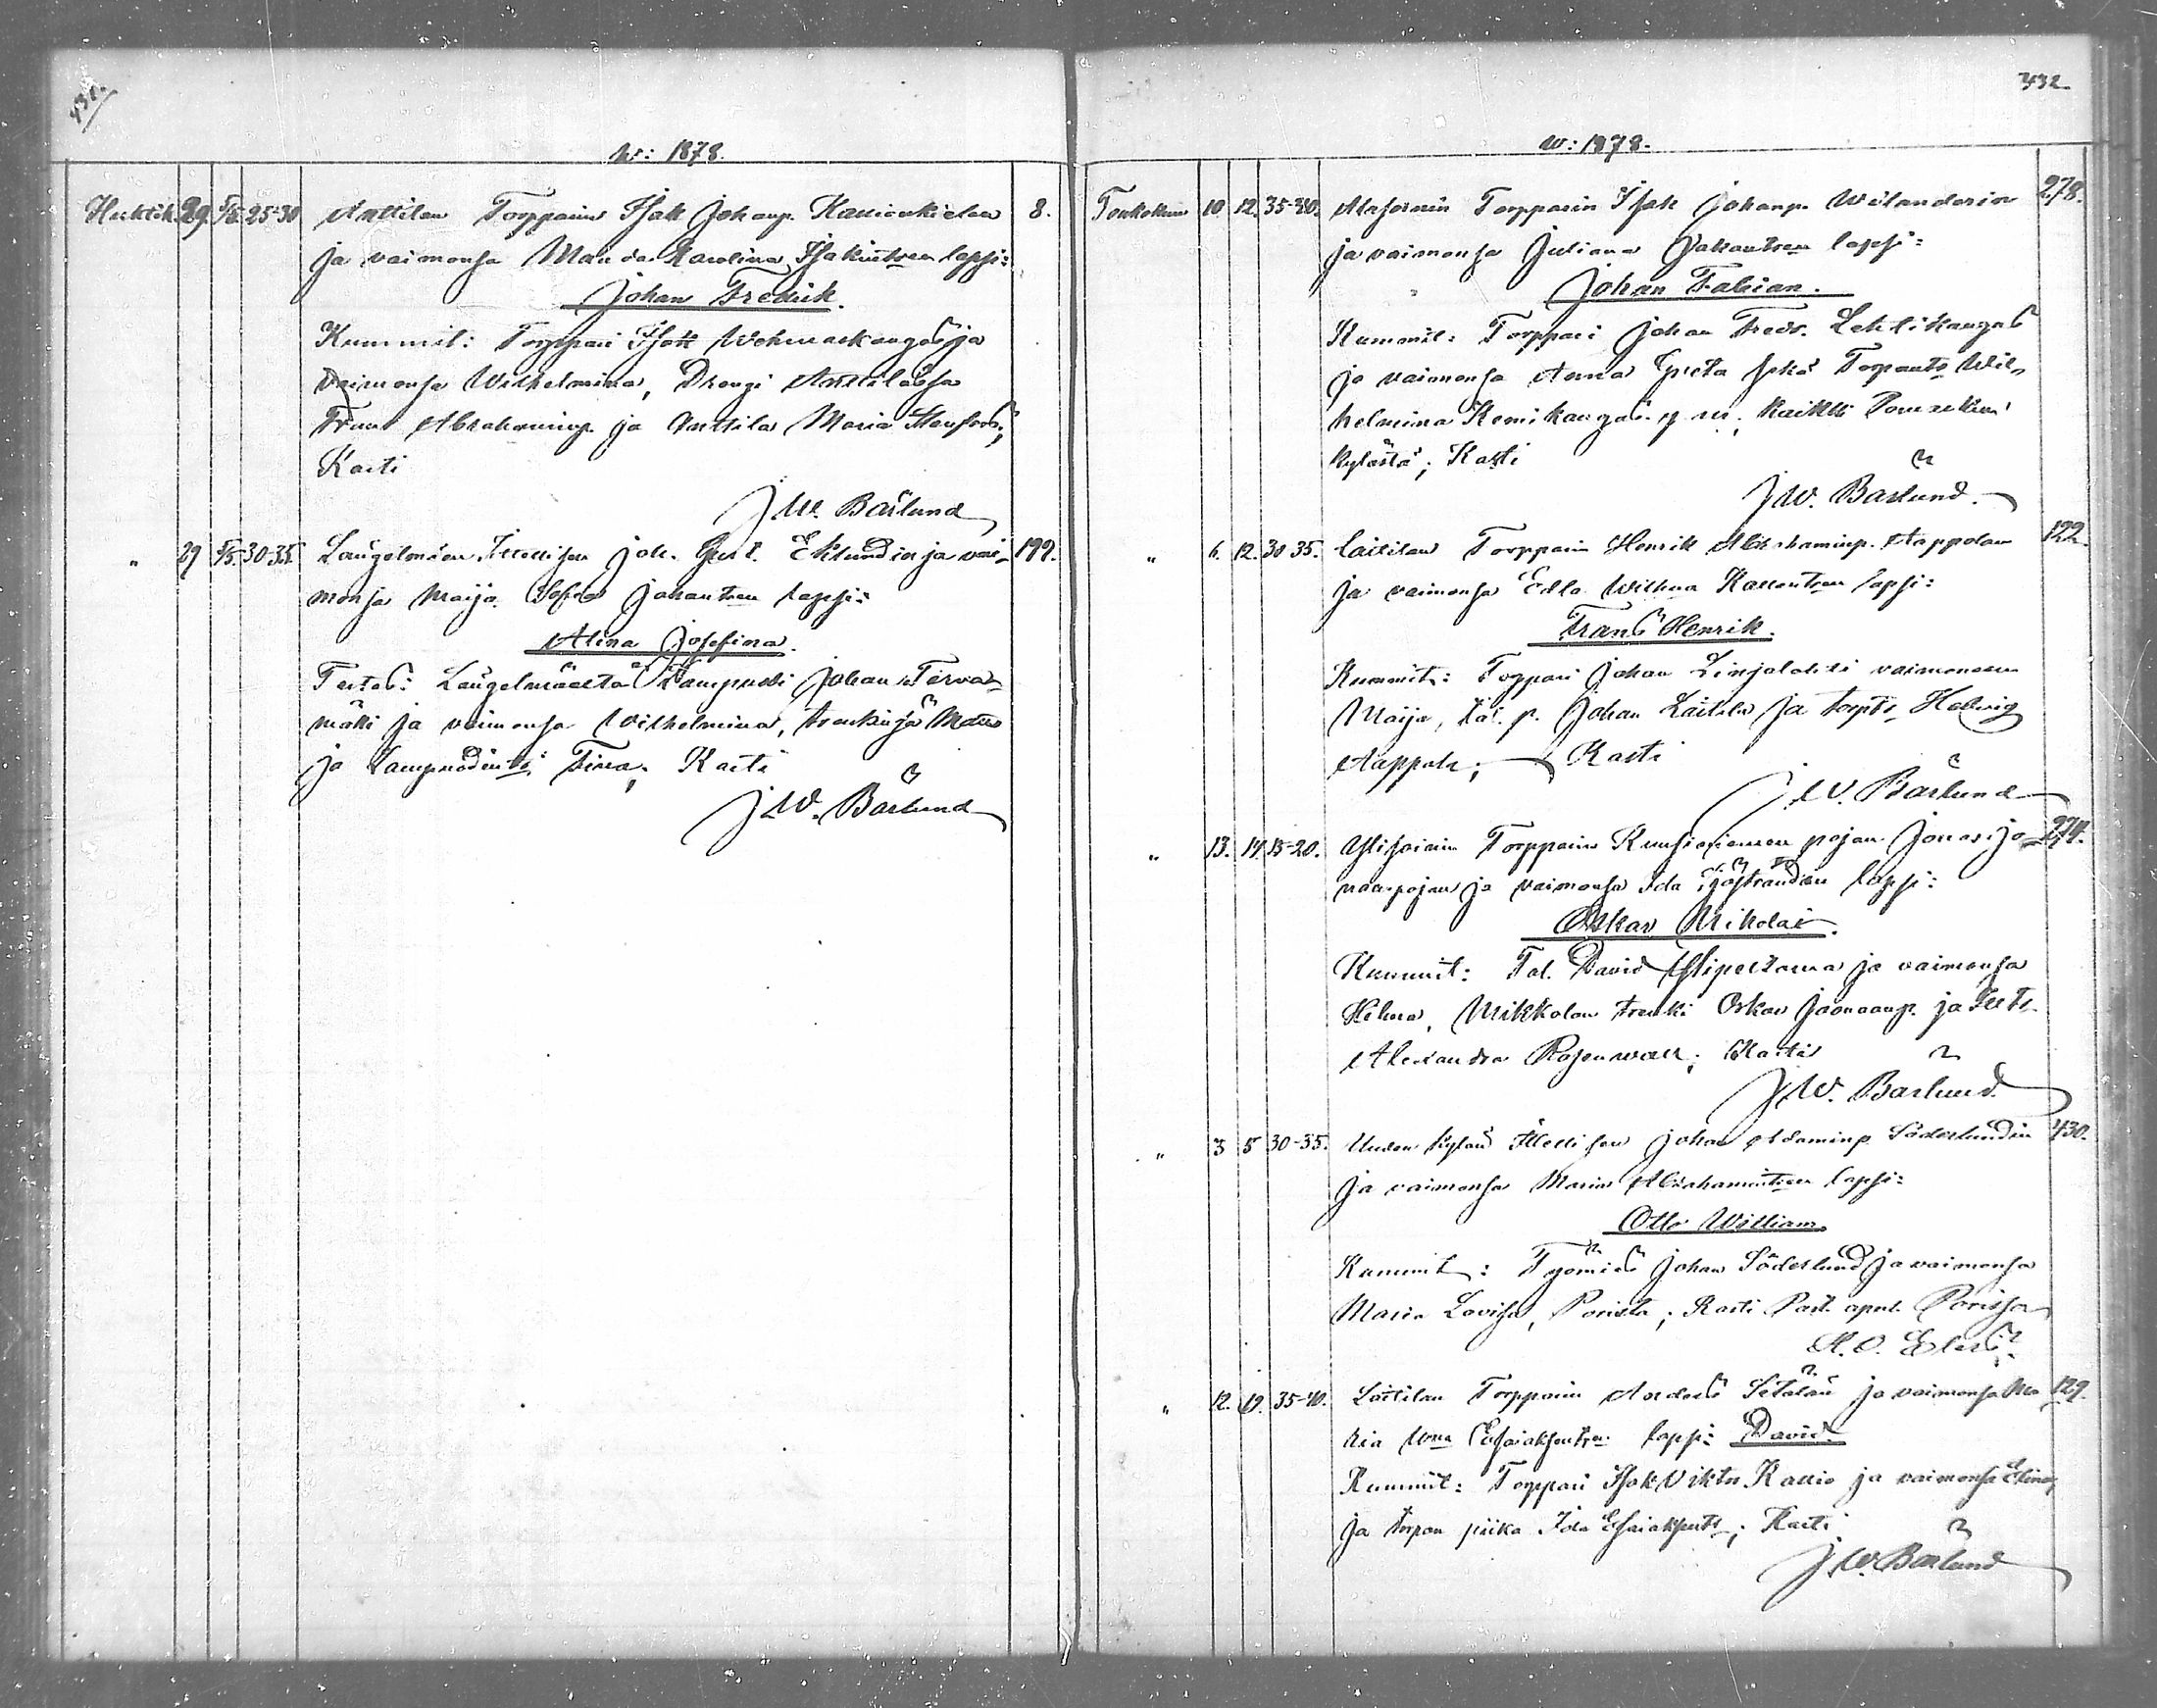 431.
w: 1878.
Huhtik. 29. 5/5. 25-30 Anttilan Torpparin Isak Johanp. Kallionkielan 8.
ja vaimonsa Manda Karolina Isakintren lapsi:
Johan Fredrik.
Kummit: Torppari Isak Wehmaskangas ja
vaimonsa Wilhelmina, Drengi Anttilassa
Frans Abrahaminp. ja Anttila Maria Stenfors;
Kasti
J.W. Bärlund
" 29 5/5. 30-35. Längelmäen Itsellisen Joh. Gust. Eklundin ja vai- 199.
monsa Maija Sofia Johantren lapsi:
Alina Josefina.
Testes: Längelmäeltä Lampuoti Johan Terva-
mäki ja vaimonsa Wilhelmina, trenkinjä Matts
ja Lampuodints. Fina; Kasti
J.W. Bärlund
432.
w: 1878.
Toukokuu 10 12. 35-40. Torpparin Isak Johanp. Welanderin 278.
ja vaimonsa Juliana Johantren lapsi:
Johan Fabian.
Kummit: Torppari Johan Fredr. Lehtikangas
ja vaimonsa Anna Greta sekä Torpants Wil-
helmina Kemikangas; kaikki
kylästä; Kasti
J.W. Bärlund.
" 6. 12. 30-35. Laitilan Torpparin Henrik Abrahaminp. Aappolan 122.
ja vaimonsa Edla Wilhna Kallentren lapsi:
Frans Henrik.
Kummit: Torppari Johan Linjalahti vaimoneen
Maija, tal. p. Johan Laitila ja torpts. Hedvig
Aappola; Kasti
J.W. Bärlund
" 13. 19. 15-20. Torpparin Kuusiniemen pojan Jonas Jo- 274.
naanpojan ja vaimonsa Ida Sjöstrandin lapsi:
Oskar Nikolai.
Kummit: Tal. David Ylipertama ja vaimonsa
Helena, Mikkolan trenki Oskar Joonaanp. ja
Alexandra Rosenwall; Kasti
J.W. Bärlund.
" 3 5 30-35. Uuden kylän Itsellisen Johan Adaminp. Söderlundin 430.
ja vaimonsa Maria Abrahamintren lapsi:
Otto William.
Kummit: Työmies Johan Söderlund ja vaimonsa
Maria Lovisa, Porista; Kasti Past. apul. Porissa
" 12. 19. 35-40. Laitilan Torpparin Anders Setälän ja vaimonsa Ma- 129.
ria Wna Esaiaksentren lapsi: David.
Kummit: Torppari Isak Viktor Kallio ja vaimonsa Elina,
ja torpan piika Ida Esaiaksents; Kasti
J.W. Bärlund